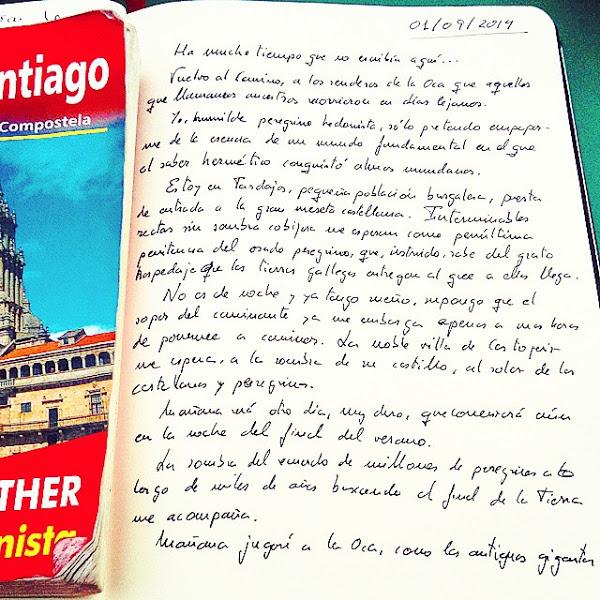 ntiago
Compostela
THER
nista
01/09/2014
Ha mucho tiempo que no escribía aquí...
Vuelvo al Camino, a los senderos de la Oca que aquellos
que llamamos ancestros recorrieron en días lejanos.
Yo, humilde peregrino hedonista, sólo pretendo empapar-
me de la esencia de un mundo fundamental en el que
el saber hermético conquistó almas mundanas.
Estoy en Tardajos, pequeña población burgalesa, puerta
de entrada a la gran meseta castellana. Interminables
rectas sin sombra me esperan como penúltima
penitencia del osado peregrino, que, instruido, sabe del grato
hospedaje que las tierras gallegas entregan al que a ellas llega.
No es de noche y ya tengo sueño, supongo que el
sopor del caminante ya me embarga apenas a unas horas
de ponerme a caminar. La noble villa de Castrojeriz
me espera, a la sombra de su castillo, al solar de los
castellanos y peregrinos.
Mañana será otro día, muy duro, que comenzará aún
en la noche del final del verano.
La sombra del recuerdo de millones de peregrinos a lo
largo de miles de años buscando el final de la Tierra
me acompaña.
Mañana jugaré a la Oca, como los antiguos gigantes